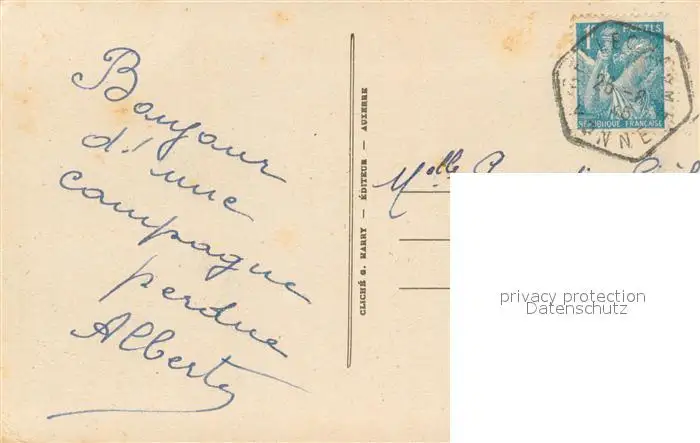 Bonjour
d'une
campagne
perdue
Alberty
CLICHÉ G. KARRY — ÉDITEUR — AUXERRE
1F POSTES
RÉPUBLIQUE FRANÇAISE
YONNE
Melle
privacy protection
Datenschutz